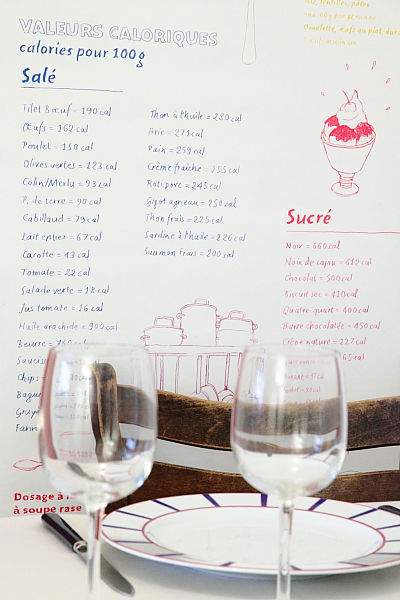 VALEURS CALORIQUES
calories pour 100g
Salé
Filet Bœuf = 190 cal
Œufs = 162 cal
Poulet = 150 cal
Olives vertes = 123 cal
Colin/Merlu = 93 cal
P. de terre = 90 cal
Cabillaud = 79 cal
Lait entier = 67 cal
Carotte = 43 cal
Tomate = 22 cal
Salade verte = 18 cal
Jus tomate = 16 cal
Huile arachide = 900 cal
Beurre = 760 cal
Sauciss
Chips
Bague
Gruy
Farin
Thon à l'huile = 280 cal
Brie = 271 cal
Pain = 259 cal
Crème fraîche = 255 cal
Roti porc = 245 cal
Gigot agneau = 250 cal
Thon frais = 225 cal
Sardine à l'huile = 226 cal
Saumon frais = 200 cal
lentilles, pâtes
100g par personne
Omelette, œufs au plat, durs
Sucré
Noix = 660 cal
Noix de cajou = 612 cal
Chocolat = 500 cal
Biscuit sec = 410 cal
Quatre quart = 400 cal
Barre chocolatée = 450 cal
Crêpe nature = 227 cal
65 cal
Dosage à
à soupe rase